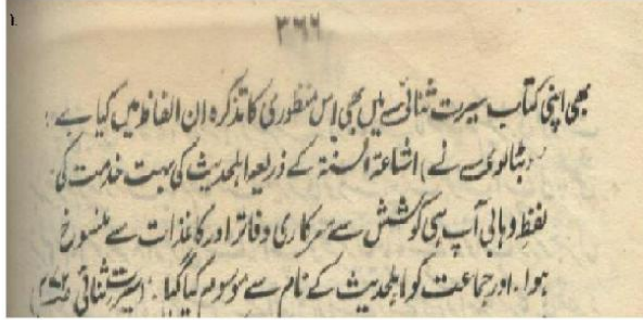 ۳۶۶
بھی اپنی کتاب سیرت ثنائی میں بھی اس منظوری کا تذکرہ ان الفاظ میں کیا ہے :
"(بٹالوی نے) اشاعۃ السنۃ کے ذریعہ اہلحدیث کی بہت خدمت کی
لفظ وہابی آپ ہی کی کوشش سے سرکاری دفاتر اور کاغذات سے منسوخ
ہوا . اور جماعت کو اہلحدیث کے نام سے موسوم کیا گیا . " (سیرت ثنائی ص۳۷۲)